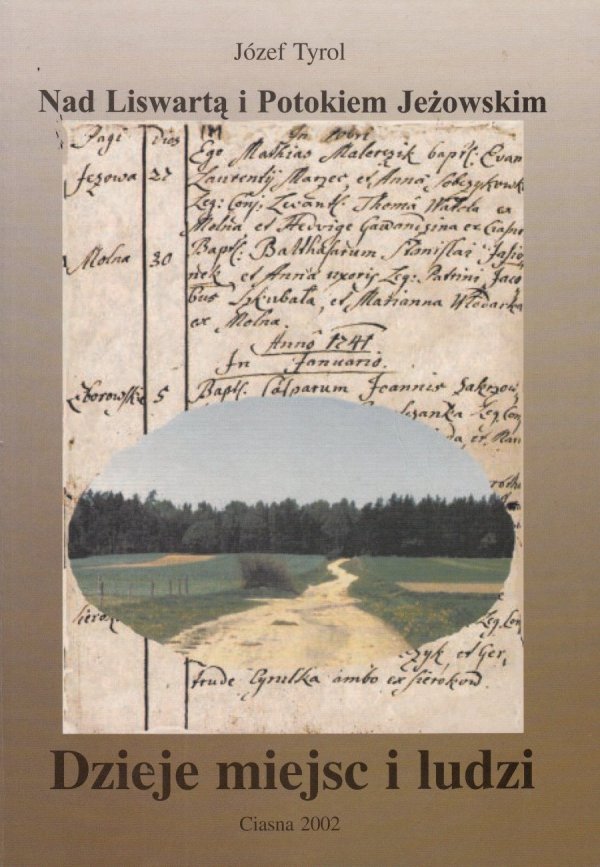 Józef Tyrol
Nad Liswartą i Potokiem Jeżowskim
Pagi Dies In
Ego Mathias Malerczik bapt: Evam
Jezowa 27 Laurentij Marzec, et Anna Sobczykowk
Leg: Conj: Levantt. Thoma Watola ex
Molna et Hedvige Gawonizina ex Ciasna
Molna 30 Bapt: Balthasarum Stanislai Jasio
nek et Anna uxoris Leg: Patrini Jaco
bus Skubała, et Marianna Włodarka
ex Molna.
Anno 1741
In Januario.
Zborowskie 5 Bapt. Casparum Joannis Zakrzow
Leg. Con
et
Leg. Con
sierok
czyk, et Ger,
trude Cyrulka ambo ex sierokow.
Dzieje miejsc i ludzi
Ciasna 2002